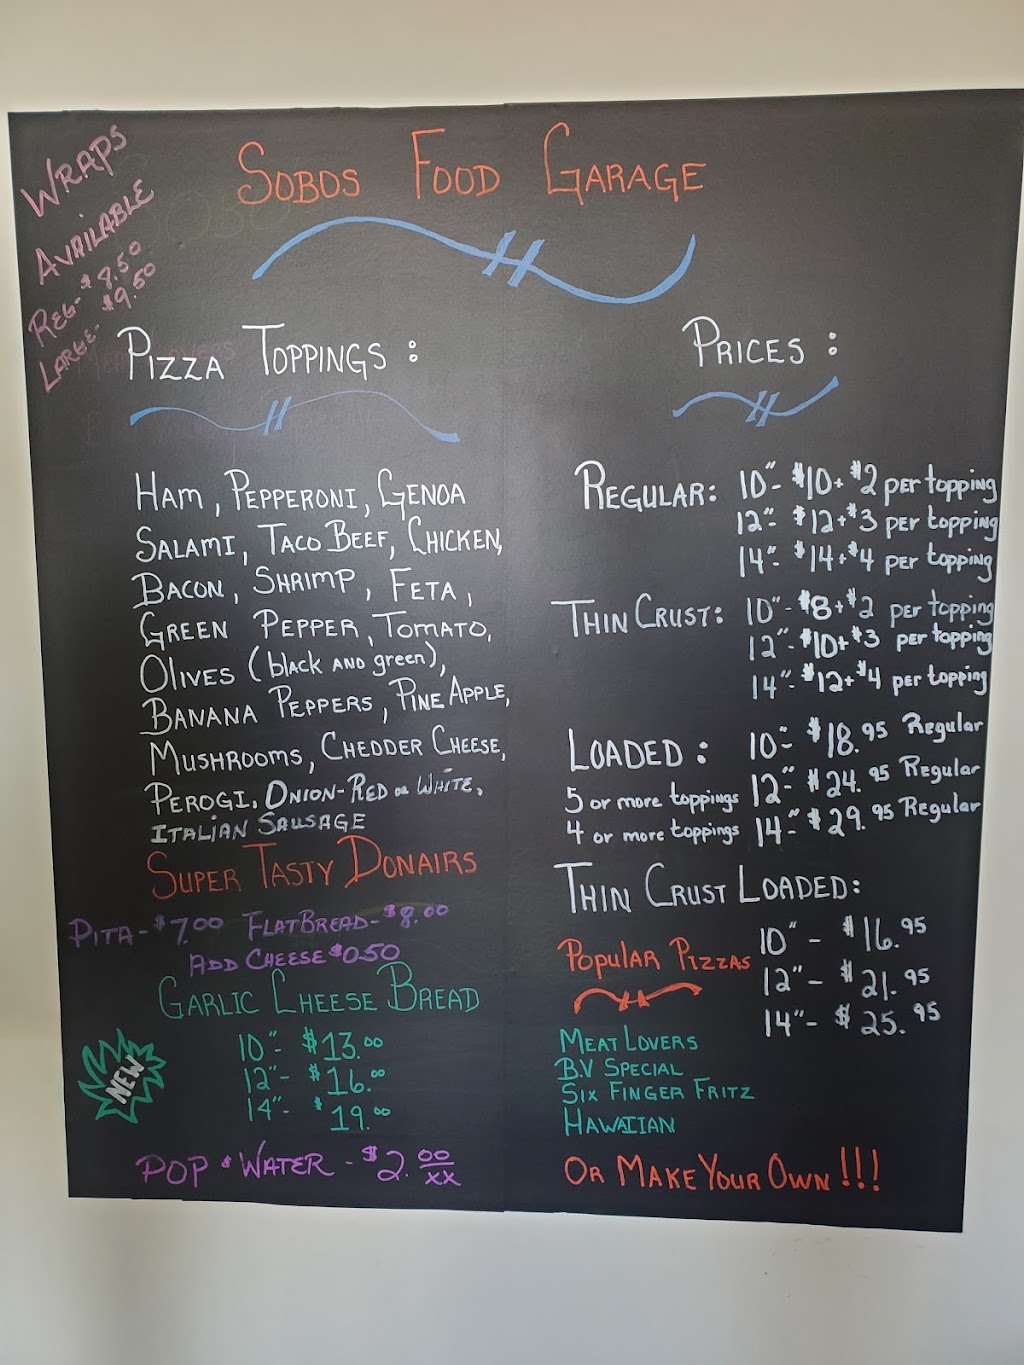 WRAPS
AVAILABLE
REG- $8.50
LARGE- $9.50
SOBOS FOOD GARAGE
PIZZA TOPPINGS :
HAM, PEPPERONI, GENOA
SALAMI, TACO BEEF, CHICKEN,
BACON, SHRIMP, FETA,
GREEN PEPPER, TOMATO,
OLIVES (black AND green),
BANANA PEPPERS, PINEAPPLE,
MUSHROOMS, CHEDDER CHEESE,
PEROGI, ONION-RED or WHITE,
ITALIAN SAUSAGE
SUPER TASTY DONAIRS
PITA-$7.00 FLATBREAD-$8.00
ADD CHEESE $0.50
GARLIC CHEESE BREAD
NEW
10"- $13.00
12"- $16.00
14"- $19.00
POP & WATER - $2.00/xx
PRICES :
REGULAR: 10"- $10+$2 per topping
12"- $12+$3 per topping
14"- $14+$4 per topping
THIN CRUST: 10"-$8+$2 per topping
12"-$10+$3 per topping
14"-$12+$4 per topping
LOADED : 10"- $18.95 Regular
5 or more toppings 12"- $24.95 Regular
4 or more toppings 14"- $29.95 Regular
THIN CRUST LOADED:
10" - $16.95
12" - $21.95
14" - $25.95
POPULAR PIZZAS
MEAT LOVERS
B.V SPECIAL
SIX FINGER FRITZ
HAWAIIAN
OR MAKE YOUR OWN !!!